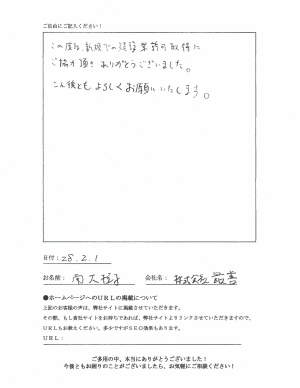 ご自由にご記入ください!
この度は、新規での建設業許の取得に
ご協力頂き ありがとうございました。
こん後とも よろしくお願いいたします。
日付:28.2.1
お名前:
会社名: 株式会社
●ホームページへのURLの掲載について
上記のお客様の声は、弊社サイトに掲載させていただきます。
その際、もし貴社サイトをお持ちであれば、弊社サイトよりリンクさせていただきますので、
URLもお教えください。多少ですがSEO効果もあります。
URL:
ご多用の中、本当にありがとうございました!
今後ともお困りのことがございましたら、お気軽にご相談ください!